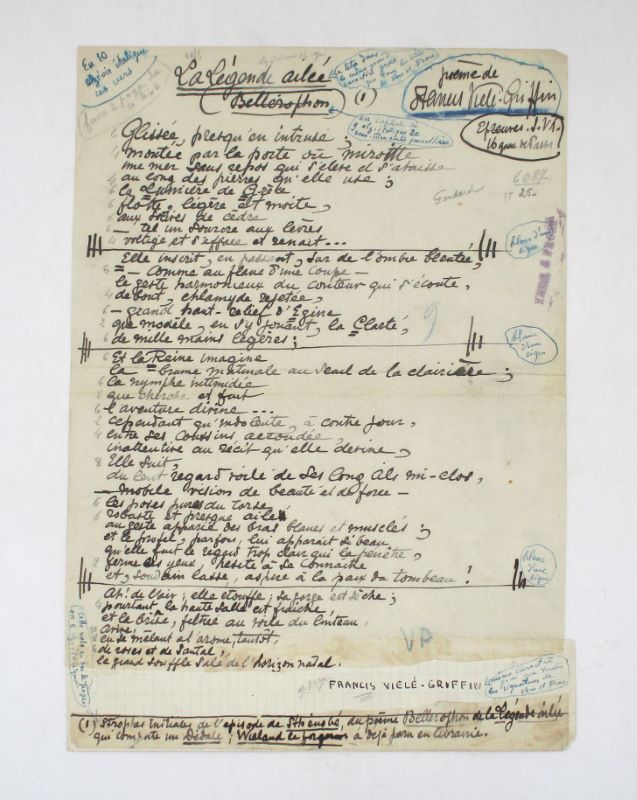 En 10
elzévir italique
ces vers
La Légende ailée
(Bellérophon) (1)
poème de
Francis Vielé-Griffin
Epreuves. S.V.P.
16 quai de Passy
6087
25
Glissée, presqu'en intruse,
montée par la porte où miroite
une mer sans repos qui s'élève et s'abaisse
au long des pierres qu'elle use ;
la Lumière de Grèce
flotte, légère et moite,
aux solives de cèdre
— tel un sourire aux lèvres
voltige et s'efface et renaît...
blanc d'une ligne
Elle inscrit, en passant, sur de l'ombre bleutée,
— comme au flanc d'une coupe —
le geste harmonieux du conteur qui s'écoute,
debout, chlamyde rejetée,
— grand haut-relief d'Egine
que modèle, en s'y jouant, la Clarté,
de mille mains légères ;
9
blanc d'une ligne
Et la Reine imagine
la brume matinale au seuil de la clairière ;
la nymphe intimidée
que cherche et fuit
l'aventure divine...
cependant qu'indolente, à contre jour,
entre ses coussins accoudée
inattentive au récit qu'elle devine,
Elle suit,
du lent regard voilé de ses longs cils mi-clos,
— mobile vision de beauté et de force —
les poses pures du torse
robuste et presque ailé
au geste apparié des bras blancs et musclés ;
et le profil, parfois, lui apparaît si beau
qu'elle fuit le regard trop clair qui la pénètre,
ferme les yeux, hésite à se connaître
et, soudain lasse, aspire à la paix du tombeau !
blanc d'une ligne
Ah! de l'air ; elle étouffe ; sa gorge est sèche ;
pourtant la haute salle est fraîche,
et la brise, filtrée au voile du linteau,
arrive,
en se mêlant à l'arome, tantôt,
de roses et de santal,
le grand souffle salé de l'horizon natal.
VA
FRANCIS VIELÉ-GRIFFIN
(1) Strophes initiales de l'épisode de Sthénobé, du poème Bellérophon de la Légende ailée
qui comporte un Dédale ; Wieland le forgeron a déjà paru en librairie.